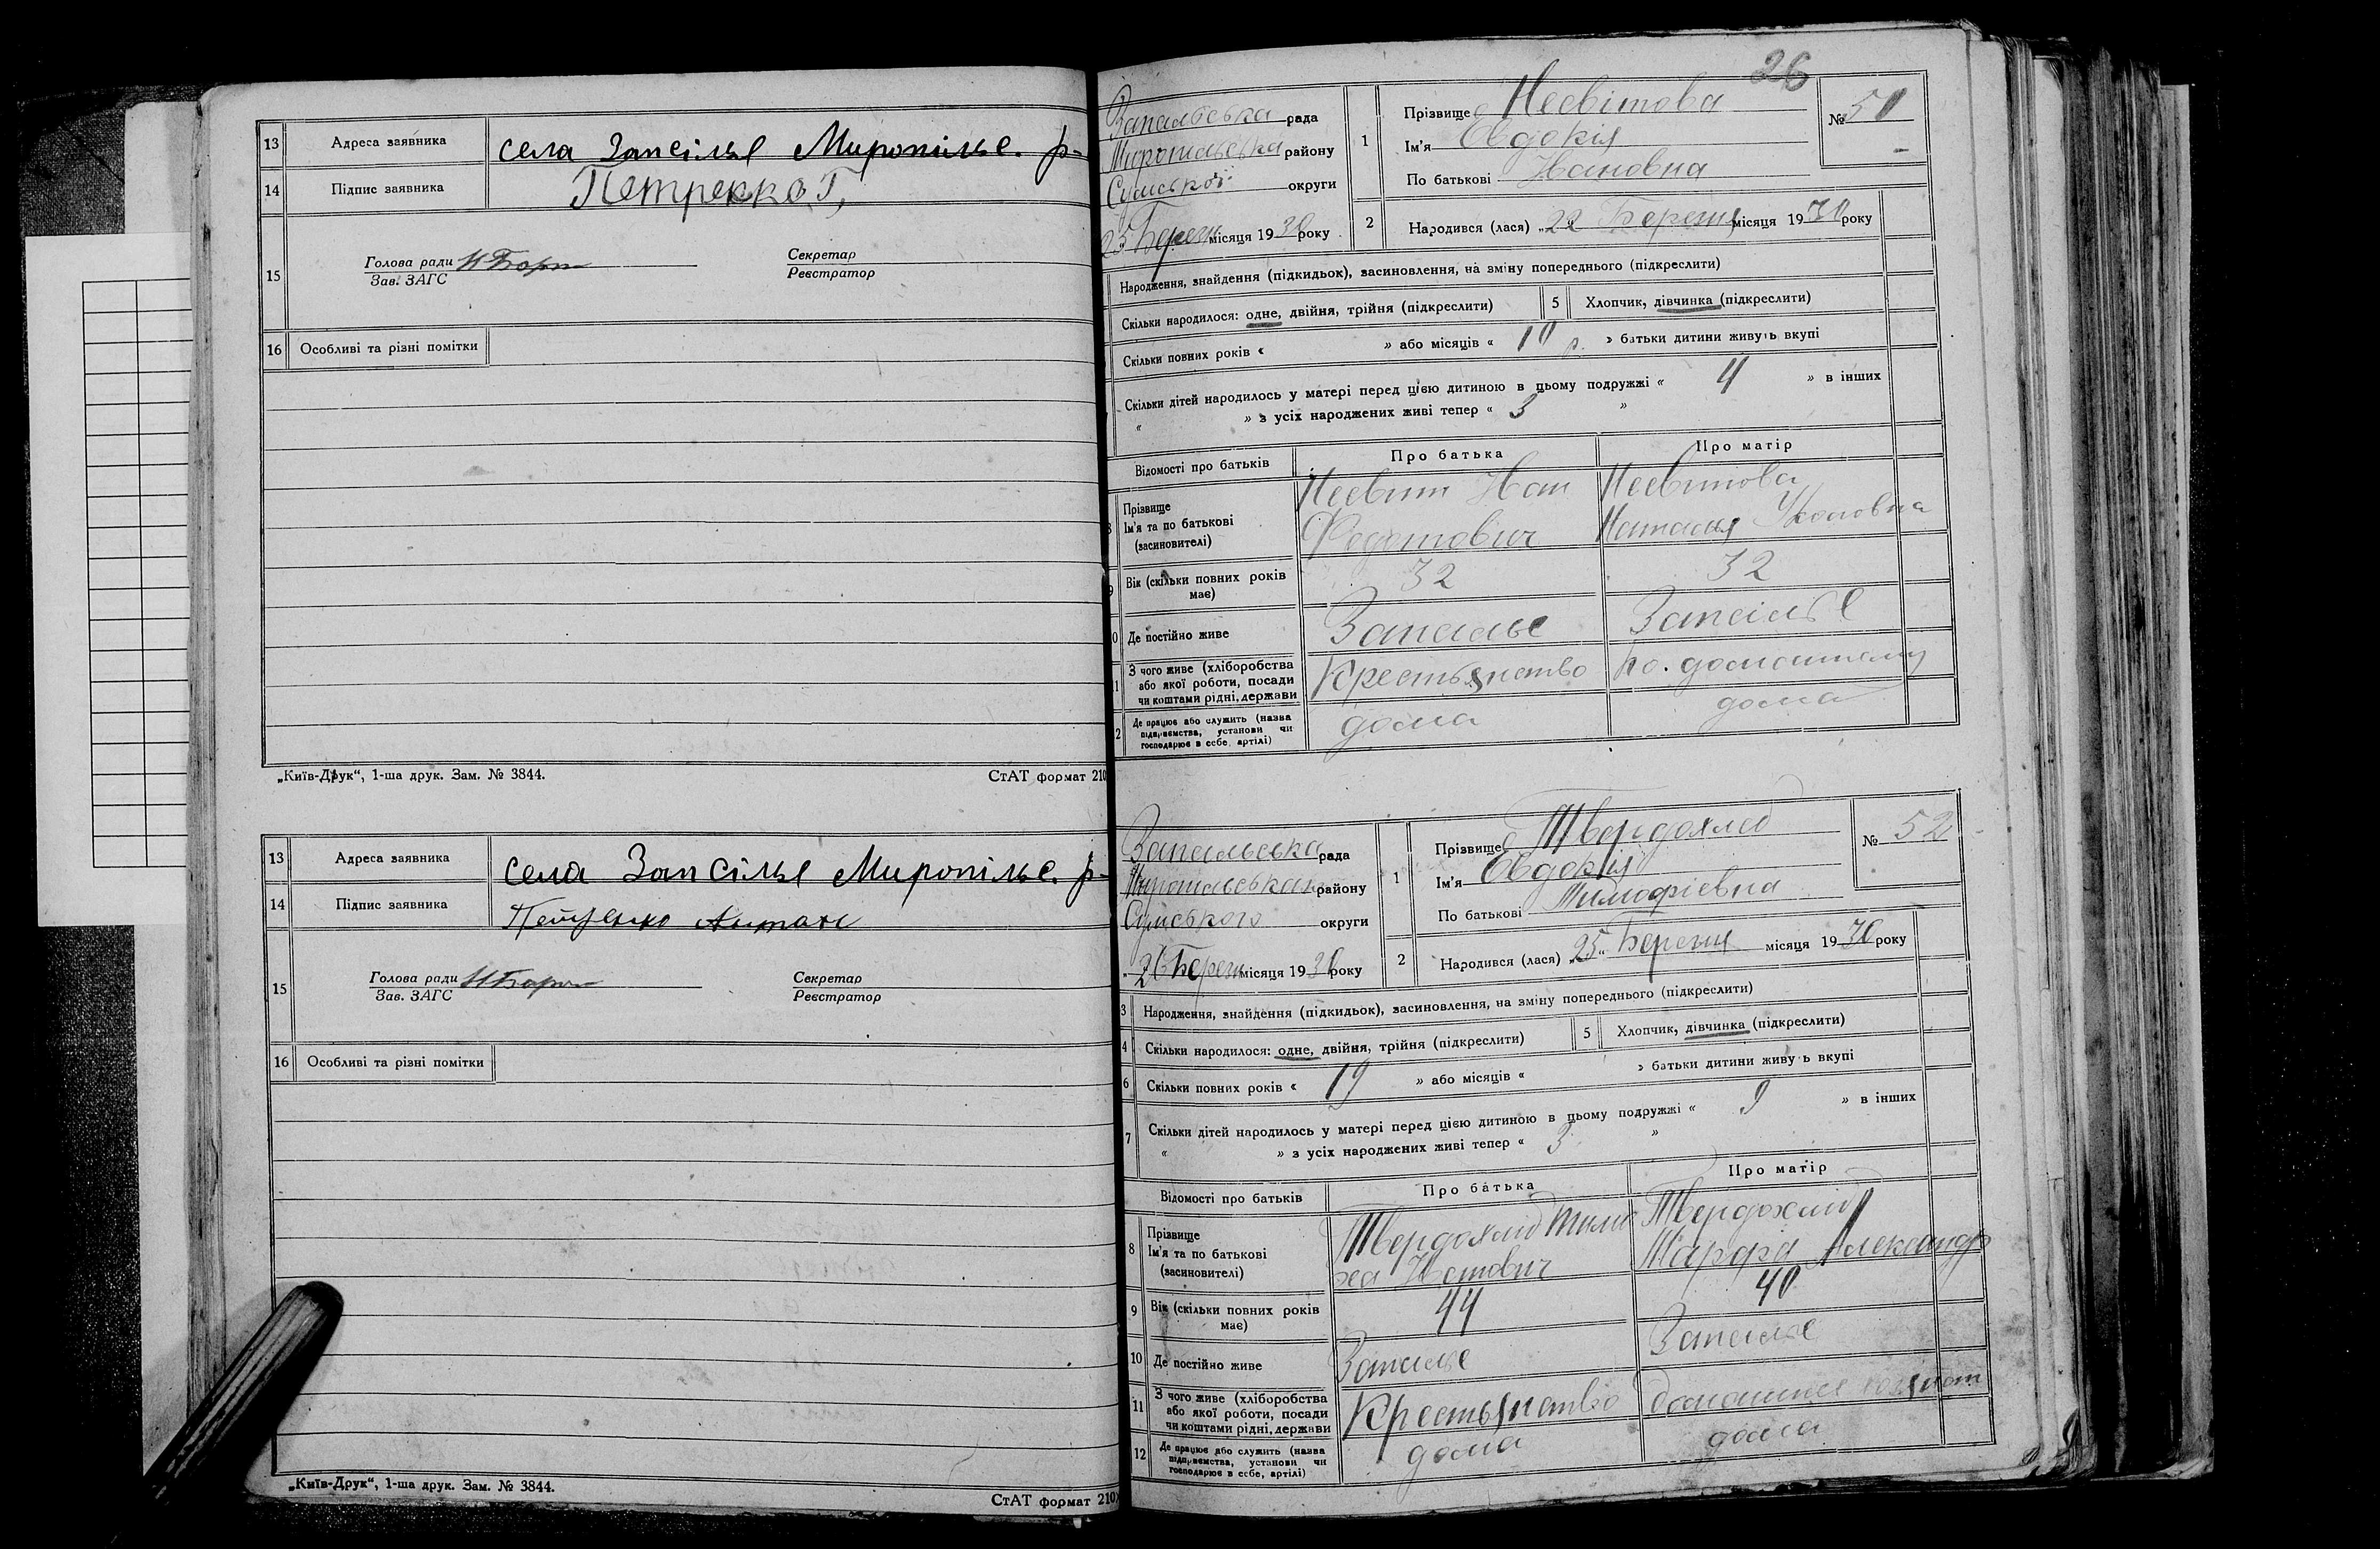 13 Адреса заявника села Запсілье Миропільс. р-
14 Підпис заявника Петренко Г,
15 Голова ради
Зав. ЗАГС
Секретар
Реєстратор
16 Особливі та різні помітки
„Київ-Друк“, 1-ша друк. Зам. № 3844. СтАТ формат 210
13 Адреса заявника села Запсілье Миропільс. р-
14 Підпис заявника Петренко Антон
15 Голова ради
Зав. ЗАГС
Секретар
Реєстратор
16 Особливі та різні помітки
„Київ-Друк“, 1-ша друк. Зам. № 3844.
СтАТ формат 210
26
Запсільська рада
Миропільська району
Сумської округи
25 Березн місяця 1930 року
1 Прізвище Неевітова
Ім'я Евдокія
По батькові Ивановна
№ 51
2 Народився (лася) „22“ Березня місяця 1930 року
Народження, знайдення (підкидьок), засиновлення, на зміну попереднього (підкреслити)
Скільки народилося: одне, двійня, трійня (підкреслити) 5 Хлопчик, дівчинка (підкреслити)
Скільки повних років « » або місяців « 10 р. » батьки дитини живуть вкупі
Скільки дітей народилось у матері перед цією дитиною в цьому подружжі « 4 » в інших
« » з усіх народжених живі тепер « 3 »
Відомості про батьків Про батька Про матір
Прізвище
Ім'я та по батькові
(засиновителі)
Неевит Иван
Федотович
Неевитова
Наталія
Вік (скільки повних років має) 32 32
Де постійно живе Запсилье Запсілье
З чого живе (хліборобства
або якої роботи, посади
чи коштами рідні, держави
Крестьянство по. домашнему
Де працює або служить (назва
підприємства, установи чи
господарює в себе, артілі)
дома дома
Запсильська рада
Миропільська району
Сумського округи
„26 Березн місяця 1930 року
1 Прізвище Твердохлеб
Ім'я Евдокія
По батькові Тимофіевна
№ 52
2 Народився (лася) „25“ Березня місяця 1930 року
3 Народження, знайдення (підкидьок), засиновлення, на зміну попереднього (підкреслити)
4 Скільки народилося: одне, двійня, трійня (підкреслити) 5 Хлопчик, дівчинка (підкреслити)
6 Скільки повних років « 19 » або місяців « » батьки дитини живуть вкупі
7 Скільки дітей народилось у матері перед цією дитиною в цьому подружжі « 9 » в інших
« » з усіх народжених живі тепер « 3 »
Відомості про батьків Про батька Про матір
8 Прізвище
Ім'я та по батькові
(засиновителі)
Твердохлід Тимо
хеа Иванович
Твердохліб
Марфа Александр
9 Вік (скільки повних років має) 44 40
10 Де постійно живе Запсилье Запсилье
11 З чого живе (хліборобства
або якої роботи, посади
чи коштами рідні, держави
Крестьянство домашнее
12 Де працює або служить (назва
підприємства, установи чи
господарює в себе, артілі)
дома дома